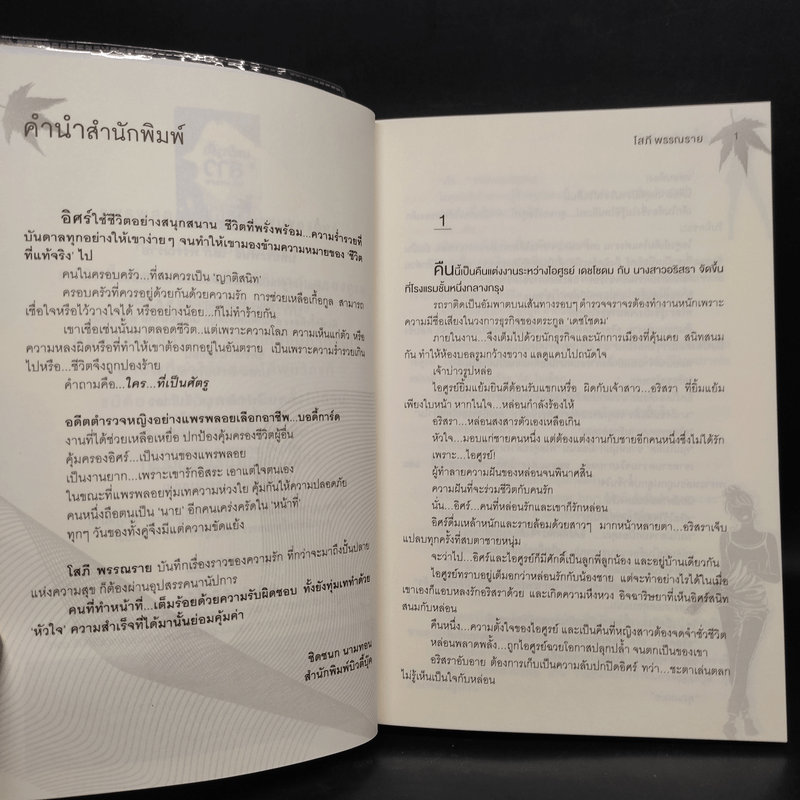 คำนำสำนักพิมพ์
อิศร์ใช้ชีวิตอย่างสนุกสนาน ชีวิตที่พรั่งพร้อม...ความร่ำรวยที่
บันดาลทุกอย่างให้เขาง่ายๆ จนทำให้เขามองข้ามความหมายของ 'ชีวิต
ที่แท้จริง' ไป
คนในครอบครัว...ที่สมควรเป็น 'ญาติสนิท'
ครอบครัวที่ควรอยู่ด้วยกันด้วยความรัก การช่วยเหลือเกื้อกูล สามารถ
เชื่อใจหรือไว้วางใจได้ หรืออย่างน้อย...ก็ไม่ทำร้ายกัน
เขาเชื่อเช่นนั้นมาตลอดชีวิต...แต่เพราะความโลภ ความเห็นแก่ตัว หรือ
ความหลงผิดหรือที่ทำให้เขาต้องตกอยู่ในอันตราย เป็นเพราะความร่ำรวยเกิน
ไปหรือ...ชีวิตจึงถูกปองร้าย
คำถามคือ...ใคร...ที่เป็นศัตรู
อดีตตำรวจหญิงอย่างแพรพลอยเลือกอาชีพ...บอดี้การ์ด
งานที่ได้ช่วยเหลือเหยื่อ ปกป้องคุ้มครองชีวิตผู้อื่น
คุ้มครองอิศร์...เป็นงานของแพรพลอย
เป็นงานยาก...เพราะเขารักอิสระ เอาแต่ใจตนเอง
ในขณะที่แพรพลอยทุ่มเทความห่วงใย คุ้มกันให้ความปลอดภัย
คนหนึ่งถือตนเป็น 'นาย' อีกคนเคร่งครัดใน 'หน้าที่'
ทุกๆ วันของทั้งคู่จึงมีแต่ความขัดแย้ง
โสภี พรรณราย บันทึกเรื่องราวของความรัก ที่กว่าจะมาถึงปั้นปลาย
แห่งความสุข ก็ต้องผ่านอุปสรรคนานัปการ
คนที่ทำหน้าที่...เต็มร้อยด้วยความรับผิดชอบ ทั้งยังทุ่มเททำด้วย
'หัวใจ' ความสำเร็จที่ได้มานั้นย่อมคุ้มค่า
ชิดชนก นามทอน
สำนักพิมพ์บิวตี้บุ๊ค
โสภี พรรณราย 1
1
คืนนี้เป็นคืนแต่งงานระหว่างไอศูรย์ เดชโชดม กับ นางสาวอริสรา จัดขึ้น
ที่โรงแรมชั้นหนึ่งกลางกรุง
รถราติดเป็นอัมพาตบนเส้นทางรอบๆ ตำรวจจราจรต้องทำงานหนักเพราะ
ความมีชื่อเสียงในวงการธุรกิจของตระกูล 'เดชโชดม'
ภายในงาน...จึงเต็มไปด้วยนักธุรกิจและนักการเมืองที่คุ้นเคย สนิทสนม
กัน ทำให้ห้องบอลรูมกว้างขวาง แลดูแคบไปถนัดใจ
เจ้าบ่าวรูปหล่อ
ไอศูรย์ยิ้มแย้มยินดีต้อนรับแขกเหรื่อ ผิดกับเจ้าสาว...อริสรา ที่ยิ้มแย้ม
เพียงใบหน้า หากในใจ...หล่อนกำลังร้องไห้
อริสรา...หล่อนสงสารตัวเองเหลือเกิน
หัวใจ...มอบแก่ชายคนหนึ่ง แต่ต้องแต่งงานกับชายอีกคนหนึ่งซึ่งไม่ได้รัก
เพราะ...ไอศูรย์!
ผู้ทำลายความฝันของหล่อนจนพินาศสิ้น
ความฝันที่จะร่วมชีวิตกับคนรัก
นั่น...อิศร์...คนที่หล่อนรักและเขาก็รักหล่อน
อิศร์ดื่มเหล้าหนักและรายล้อมด้วยสาวๆ มากหน้าหลายตา...อริสราเจ็บ
แปลบทุกครั้งที่สบตาชายหนุ่ม
จะว่าไป...อิศร์และไอศูรย์ก็มีศักดิ์เป็นลูกพี่ลูกน้อง และอยู่บ้านเดียวกัน
ไอศูรย์ทราบอยู่เต็มอกว่าหล่อนรักกับน้องชาย แต่จะทำอย่างไรได้ในเมื่อ
เขาเองก็แอบหลงรักอริสราด้วย และเกิดความหึงหวง อิจฉาริษยาที่เห็นอิศร์สนิท
สนมกับหล่อน
คืนหนึ่ง...ความตั้งใจของไอศูรย์ และเป็นคืนที่หญิงสาวต้องจดจำชั่วชีวิต
หล่อนพลาดพลั้ง...ถูกไอศูรย์ฉวยโอกาสปลุกปล้ำ จนตกเป็นของเขา
อริสราอับอาย ต้องการเก็บเป็นความลับปกปิดอิศร์ ทว่า...ชะตาเล่นตลก
ไม่รู้เห็นเป็นใจกับหล่อน